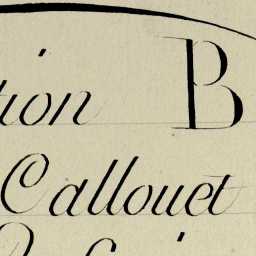 tion B
Callouet